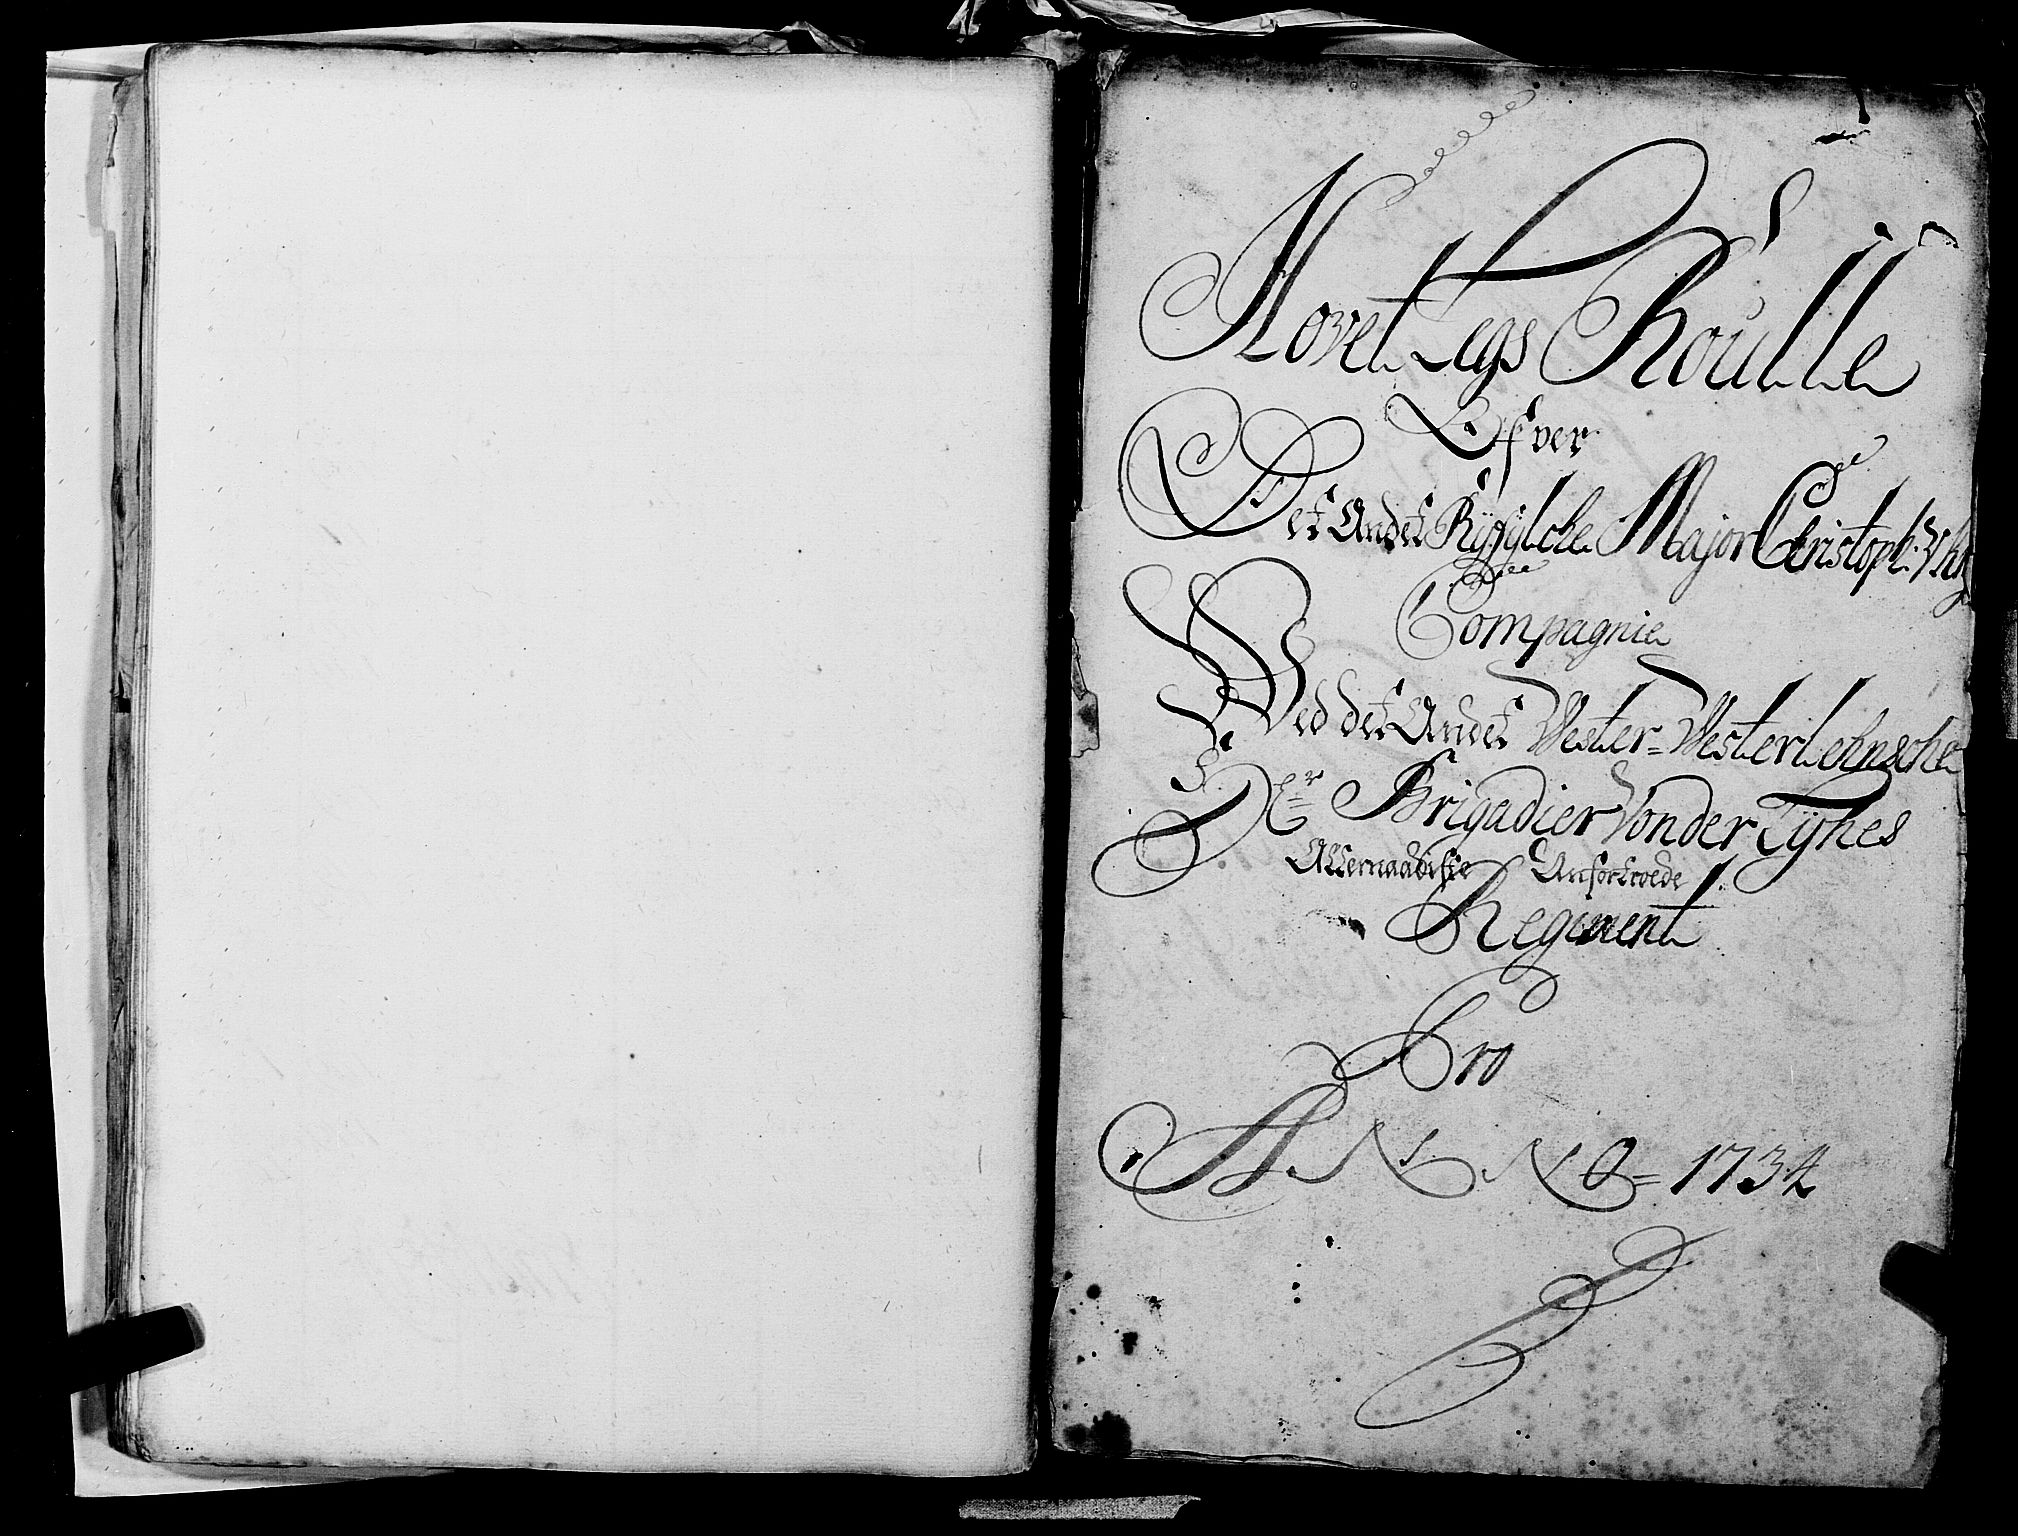 Hovet Legs Roulle
Ofver
Det Andet Ryfylcke Major Christoph:
Compagnie
Ved det Andet Vester=Vesterlehnsche
Hr: Brigadier Von der Tÿhes
Allernaadigste Anfortroede
Regiment
Pro
ANNO=1734